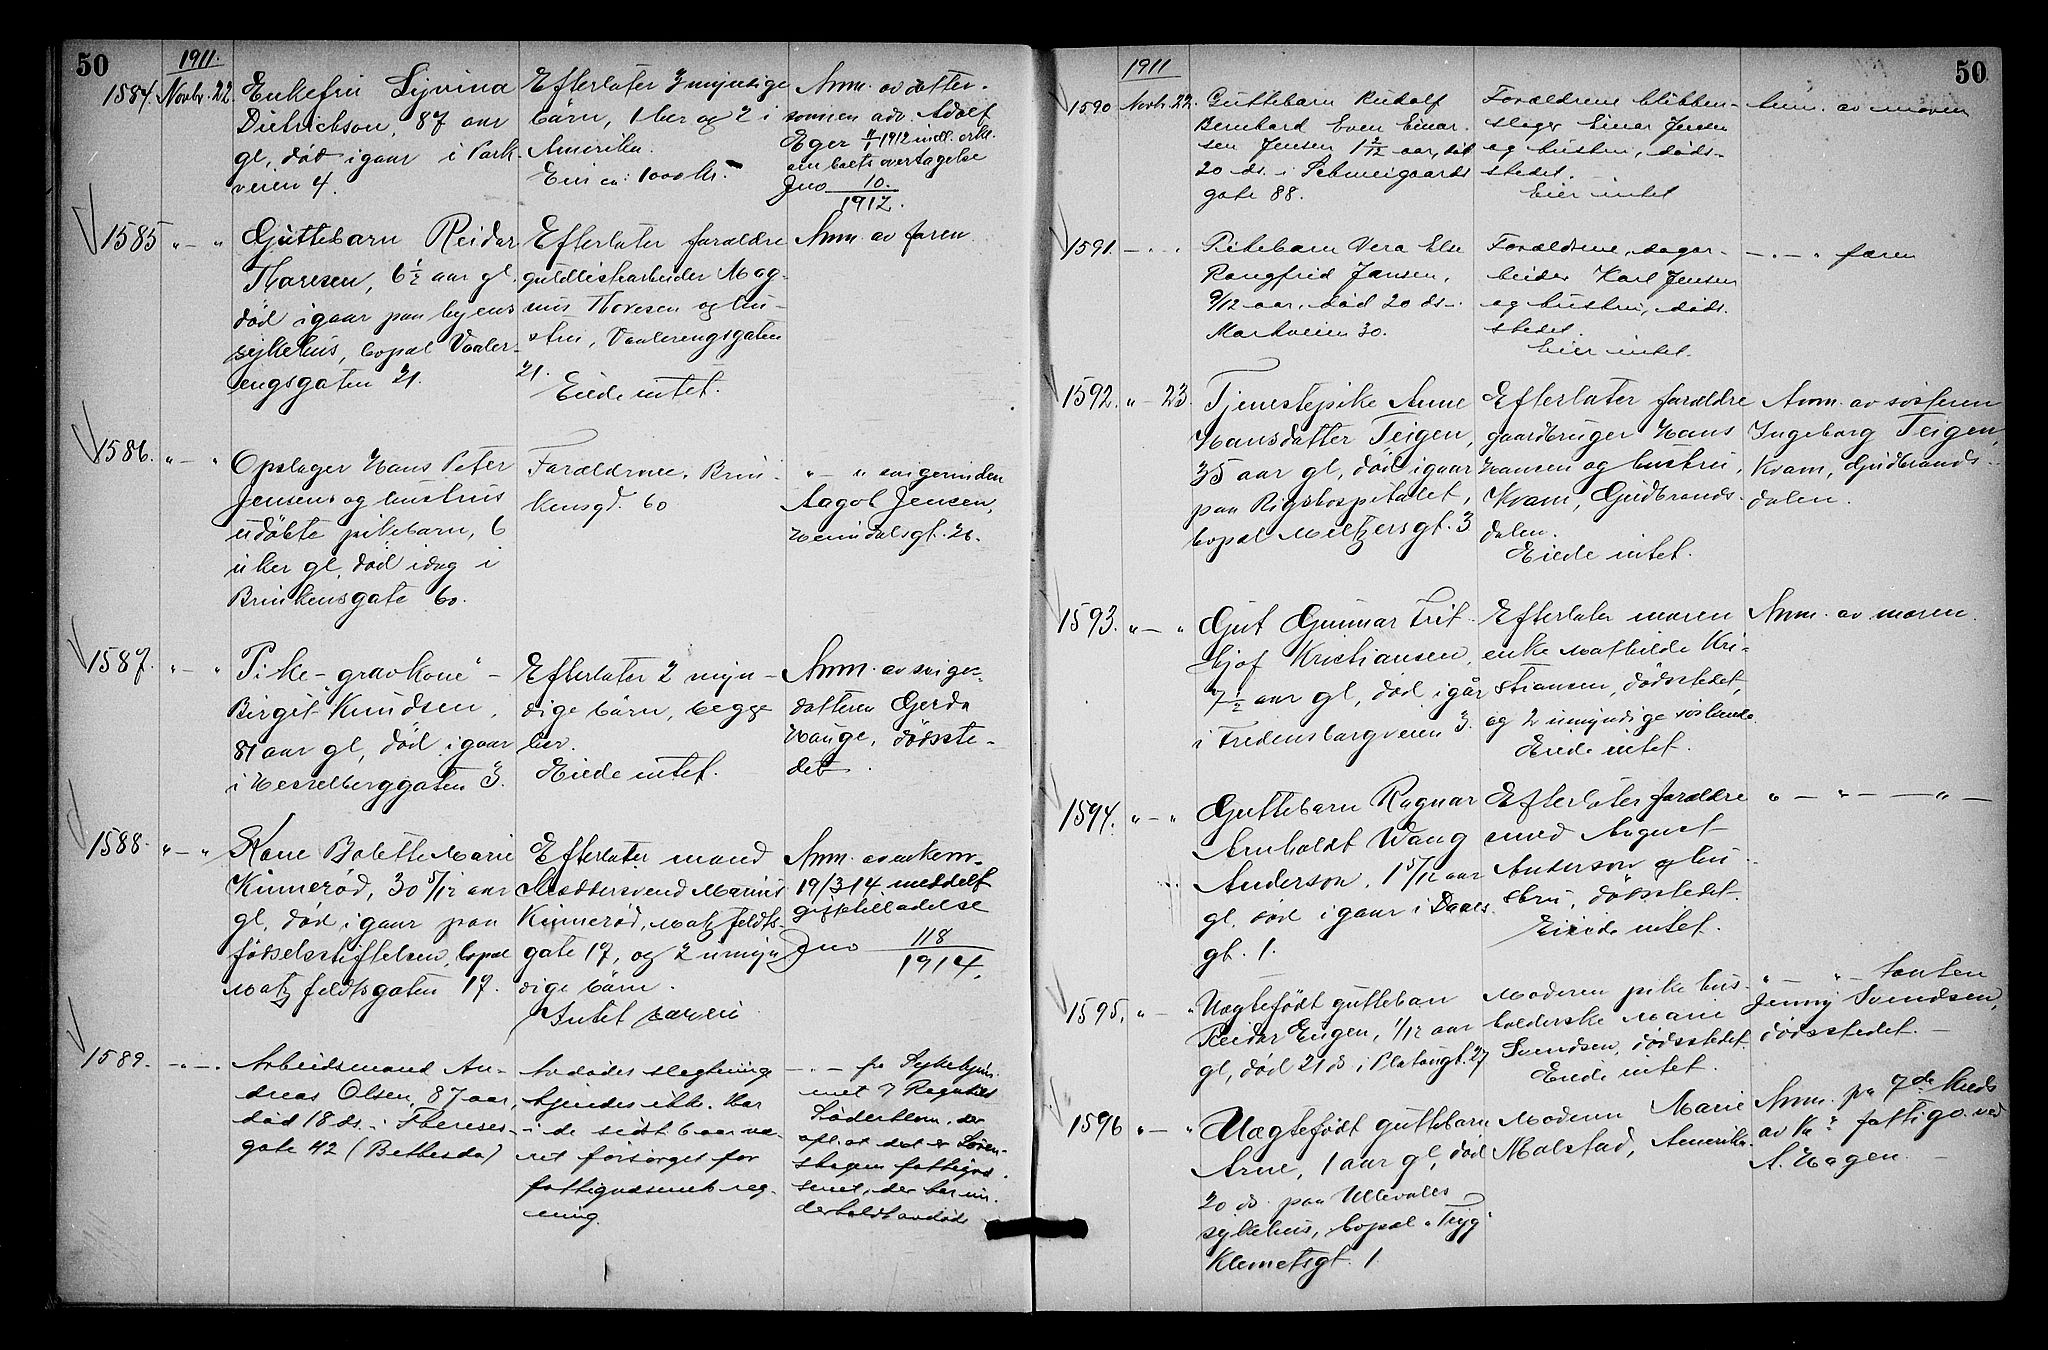 50
1911.
1584. Novbr. 22.
Enkefru Sijvina
Dietrichson, 87 aar
gl, död igaar i Park-
veien 4.
Efterlater 3 myndige
börn, 1 her og 2 i
Amerika.
Eier ca: 1000 kr.
Anm. av datter-
sönnen adv. Adolf
Eger 4/1 1912 indl. erkl.
om boets overtagelse
Jno 10.
1912.
1585 " — "
Guttebarn Reidar
Thoresen, 6 1/2 aar gl.
död igaar paa byens
sykehus, bopæl Vaaler-
engsgaten 21.
Efterlater forældre
guldlistarbeider Mag-
nus Thoresen og hu-
stru, Vaalerengsgaten
21.
Eiede intet.
Anm. av faren.
1586. " — "
Opslager Hans Peter
Jensens og hustrus
udöbte pikebarn, 6
uker gl, död idag i
Brinkensgate 60.
Forældrene. Brin-
kensgd. 60
" — " svigerinden
Aagot Jensen,
Heimdalsgt. 26.
1587. " — "
Pike - "gravkone" -
Birgit Knudsen,
81 aar gl, död igaar
i Hesselberggaten 3.
Efterlater 2 myn-
dige börn, begge
her.
Eiede intet.
Anm. av sviger-
datteren Gerda
Hauge, dödsste-
det.
1588. " — "
Kone Bolette Marie
Kinneröd, 30 5/12 aar
gl, död igaar paa
födselsstiftelsen, bopæl
Matz feldtsgaten 17.
Efterlater mand
Marius
Kinneröd, Matz feldts-
gate 17, og 2 umyn-
dige börn.
Intet bærer.
Anm. av enkem.
19/3 14. meddelt
giftetilladelse
Jno 118
1914.
1589. — " — .
Arbeidsmand An-
dreas Olsen, 87 aar,
död 18 ds. i Thereses-
gate 42 (Bethesda)
Avdödes slegtninge
kjendes ikke. Har
i de sidst. 6 aar væ-
ret forsörget for
fattigvæsenets reg-
ning.
— . — fra Sykehjem-
met v Ragnhild
Söderblom, der
opl. at det er Sören-
skogen fattigvæ-
senet, der har un-
derholdt avdöde.
50
1911
1590 Novbr. 22.
Guttebarn Rudolf
Bernhard Even Einar-
sen Jensen 1 2/12 aar, död
20 ds. i Schweigaards
gate 88.
Forældrene blikken-
slager Einar Jensen
og hustru, döds-
stedet.
Eier intet
Anm. av moren
1591. — . .
Pikebarn Vera Else
Rangfrid Jansen,
9/12 aar, död 20 ds. i
Markveien 30.
Forældrene, sager-
beider Karl Jensen
og hustru, döds-
stedet.
Eier intet.
— . — " faren
1592. " — 23.
Tjenestepike Anne
Hansdatter Teigen,
35 aar gl, död igaar
paa Rigshospitalet,
bopæl Meltzersgt. 3
Efterlater forældre
gaardbruger Hans
Hansen og hustru,
Kvam, Gudbrands-
dalen.
Eiede intet.
Anm. av sösteren
Ingeborg Teigen,
Kvam, Gudbrands-
dalen.
1593. " — "
Gut Gunnar Frit-
hjof Kristiansen,
7 1/2 aar gl, död igår
i Fredensborgveien 3.
Efterlater moren
enke Mathilde Kri-
stiansen, dödsstedet,
og 2 umyndige söskende.
Eiede intet.
Anm. av moren.
1594. " — "
Guttebarn Ragnar
Arnholdt Wang
Anderson, 1 5/12 aar
gl, död igaar i Daaes
gt. 1.
Efterlater forældre
August
Anderson og hu-
stru, dödsstedet.
Eiede intet.
" — " — — " —
1595. " — "
Uægtefödt guttebarn
Reidar Eugen, 1/12 aar
gl, död 21 ds i Platougt. 27
Moderen pike hus-
holderske Marie
Svendsen, dödsstedet.
Eiede intet.
" — " — tanten
Jenny Svendsen,
dödsstedet. —
1596 " — "
Uægtefödt guttebarn
Arne, 1 aar gl, död
20 ds. paa Ullevaals
sykehus, bopæl "Tryg"
Klemetsgt. 1.
Moderen Marie
Malstad, Amerika.
Anm. fra 7de kreds
av Kra fattigv. ved
A. Hagen. —